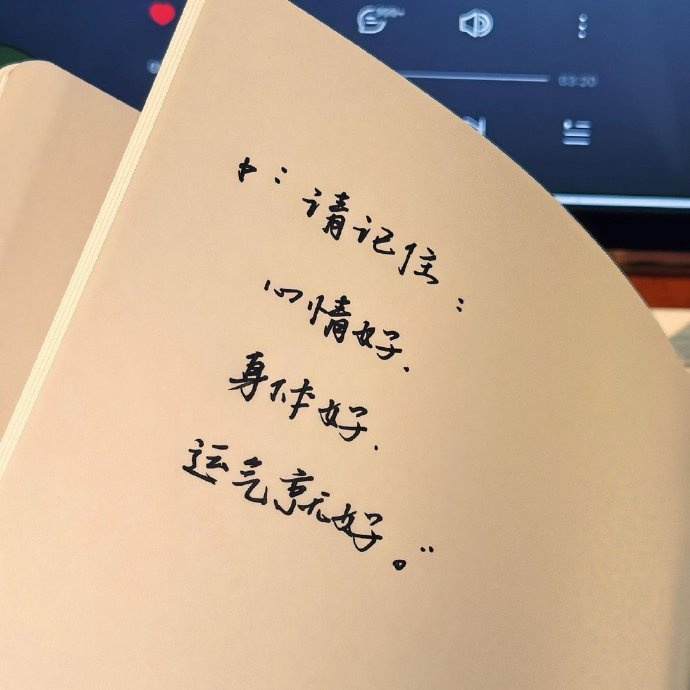 03:20
请记住：
心情好.
身体好.
运气就好。¨